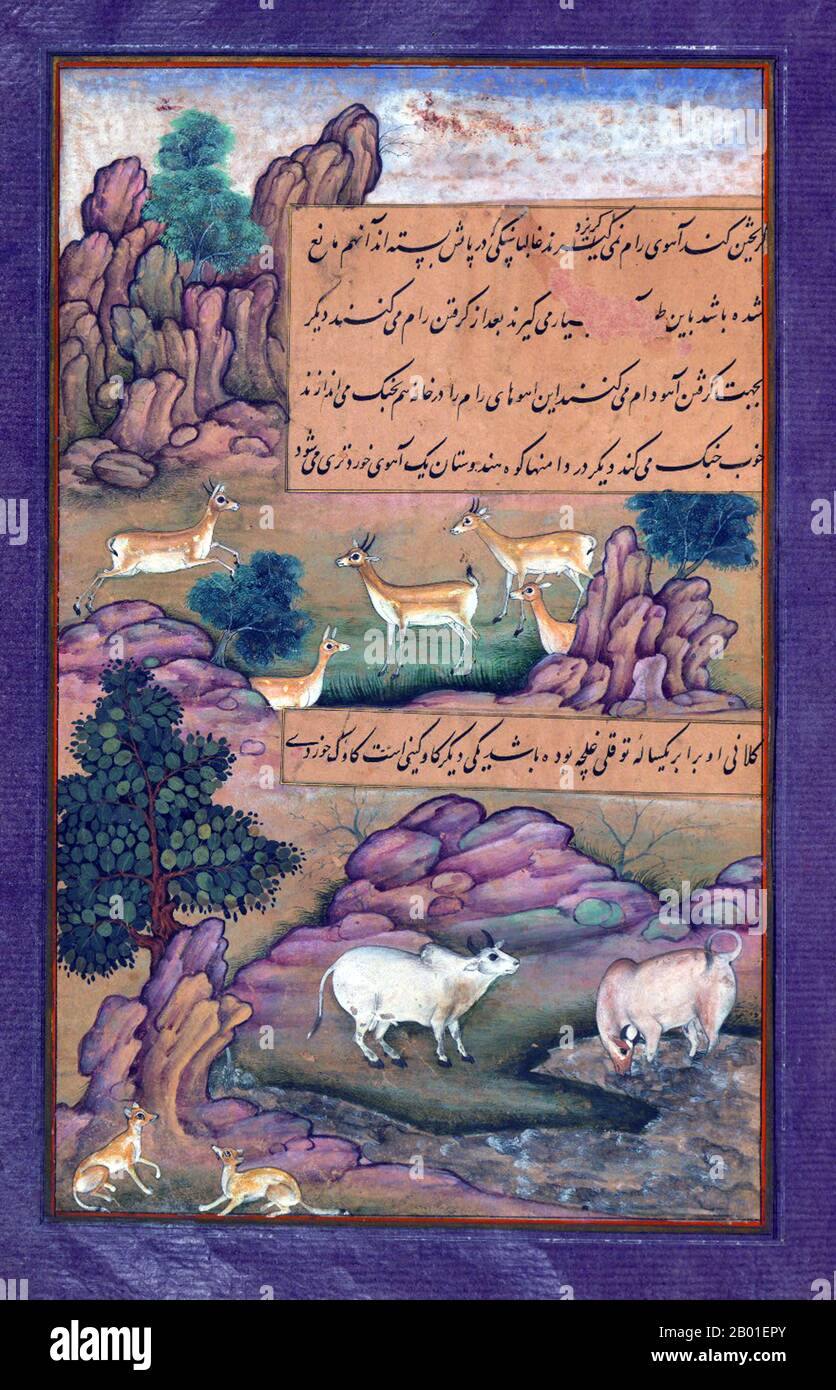 گریختن کند آهوی رام نمی گریزد غالبا سنگی در پاش بسته اند آنهم مانع
شده باشد باین بسیار می گیرند بعد از گرفتن رام می کنند دیگر
بجهت گرفتن آهو دام می کنند این آهوهای رام را در خانه هم بجنگ می اندازند
خوب جنگ می کند دیگر در دامنهای کوه هندوستان یک آهوی خوردتری می شود
کلانی او برابر یکساله توقلی غلچه بوده باشد یکی دیگر کاو کینی است کاوک خوردی
alamy
Image ID: 2B01EPY
www.alamy.com